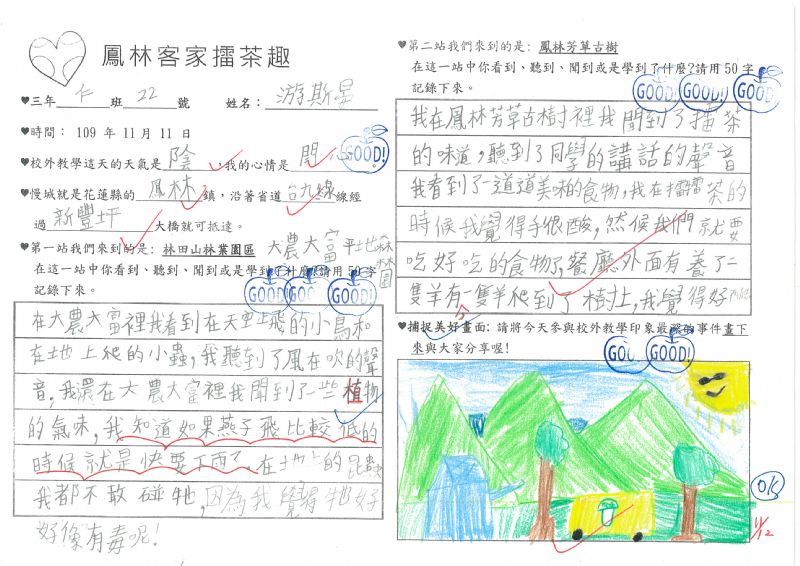 鳳林客家擂茶趣
♥三年 仁 班 22 號 姓名： 游斯晏
♥時間： 109 年 11 月 11 日
♥校外教學這天的天氣是 陰 ，我的心情是 開心 GOOD!
♥慢城就是花蓮縣的 鳳林 鎮，沿著省道 台九線 線經
過 新豐坪 大橋就可抵達。
♥第一站我們來到的是：林田山林業園區 大農大富平地森林園
在這一站中你看到、聽到、聞到或是學到了什麼?請用50字
記錄下來。
GOOD! GOOD! GOOD!
在大農大富裡我看到在天空上飛的小鳥和
在地上爬的小蟲，我聽到了風在吹的聲
音，我還在大農大富裡我聞到了一些植物
的氣味，我知道如果燕子飛比較低的
時候就是快要下雨了。在地上的昆蟲
我都不敢碰牠，因為我覺得牠好
好像有毒呢！
♥第二站我們來到的是：鳳林芳草古樹
在這一站中你看到、聽到、聞到或是學到了什麼?請用50字
記錄下來。
GOOD! GOOD! GOOD!
我在鳳林芳草古樹裡我聞到了擂茶
的味道，聽到了同學的講話的聲音
我看到了一道道美味的食物，我在擂擂茶的
時候我覺得手很酸，然候我們就要
吃好吃的食物了，餐廳外面有養了二
隻羊有一隻羊爬到了樹上，我覺得好
♥捕捉美好畫面：請將今天參與校外教學印象最深的事件畫下
來與大家分享喔!
GOOD! GOOD!
OK
11/12